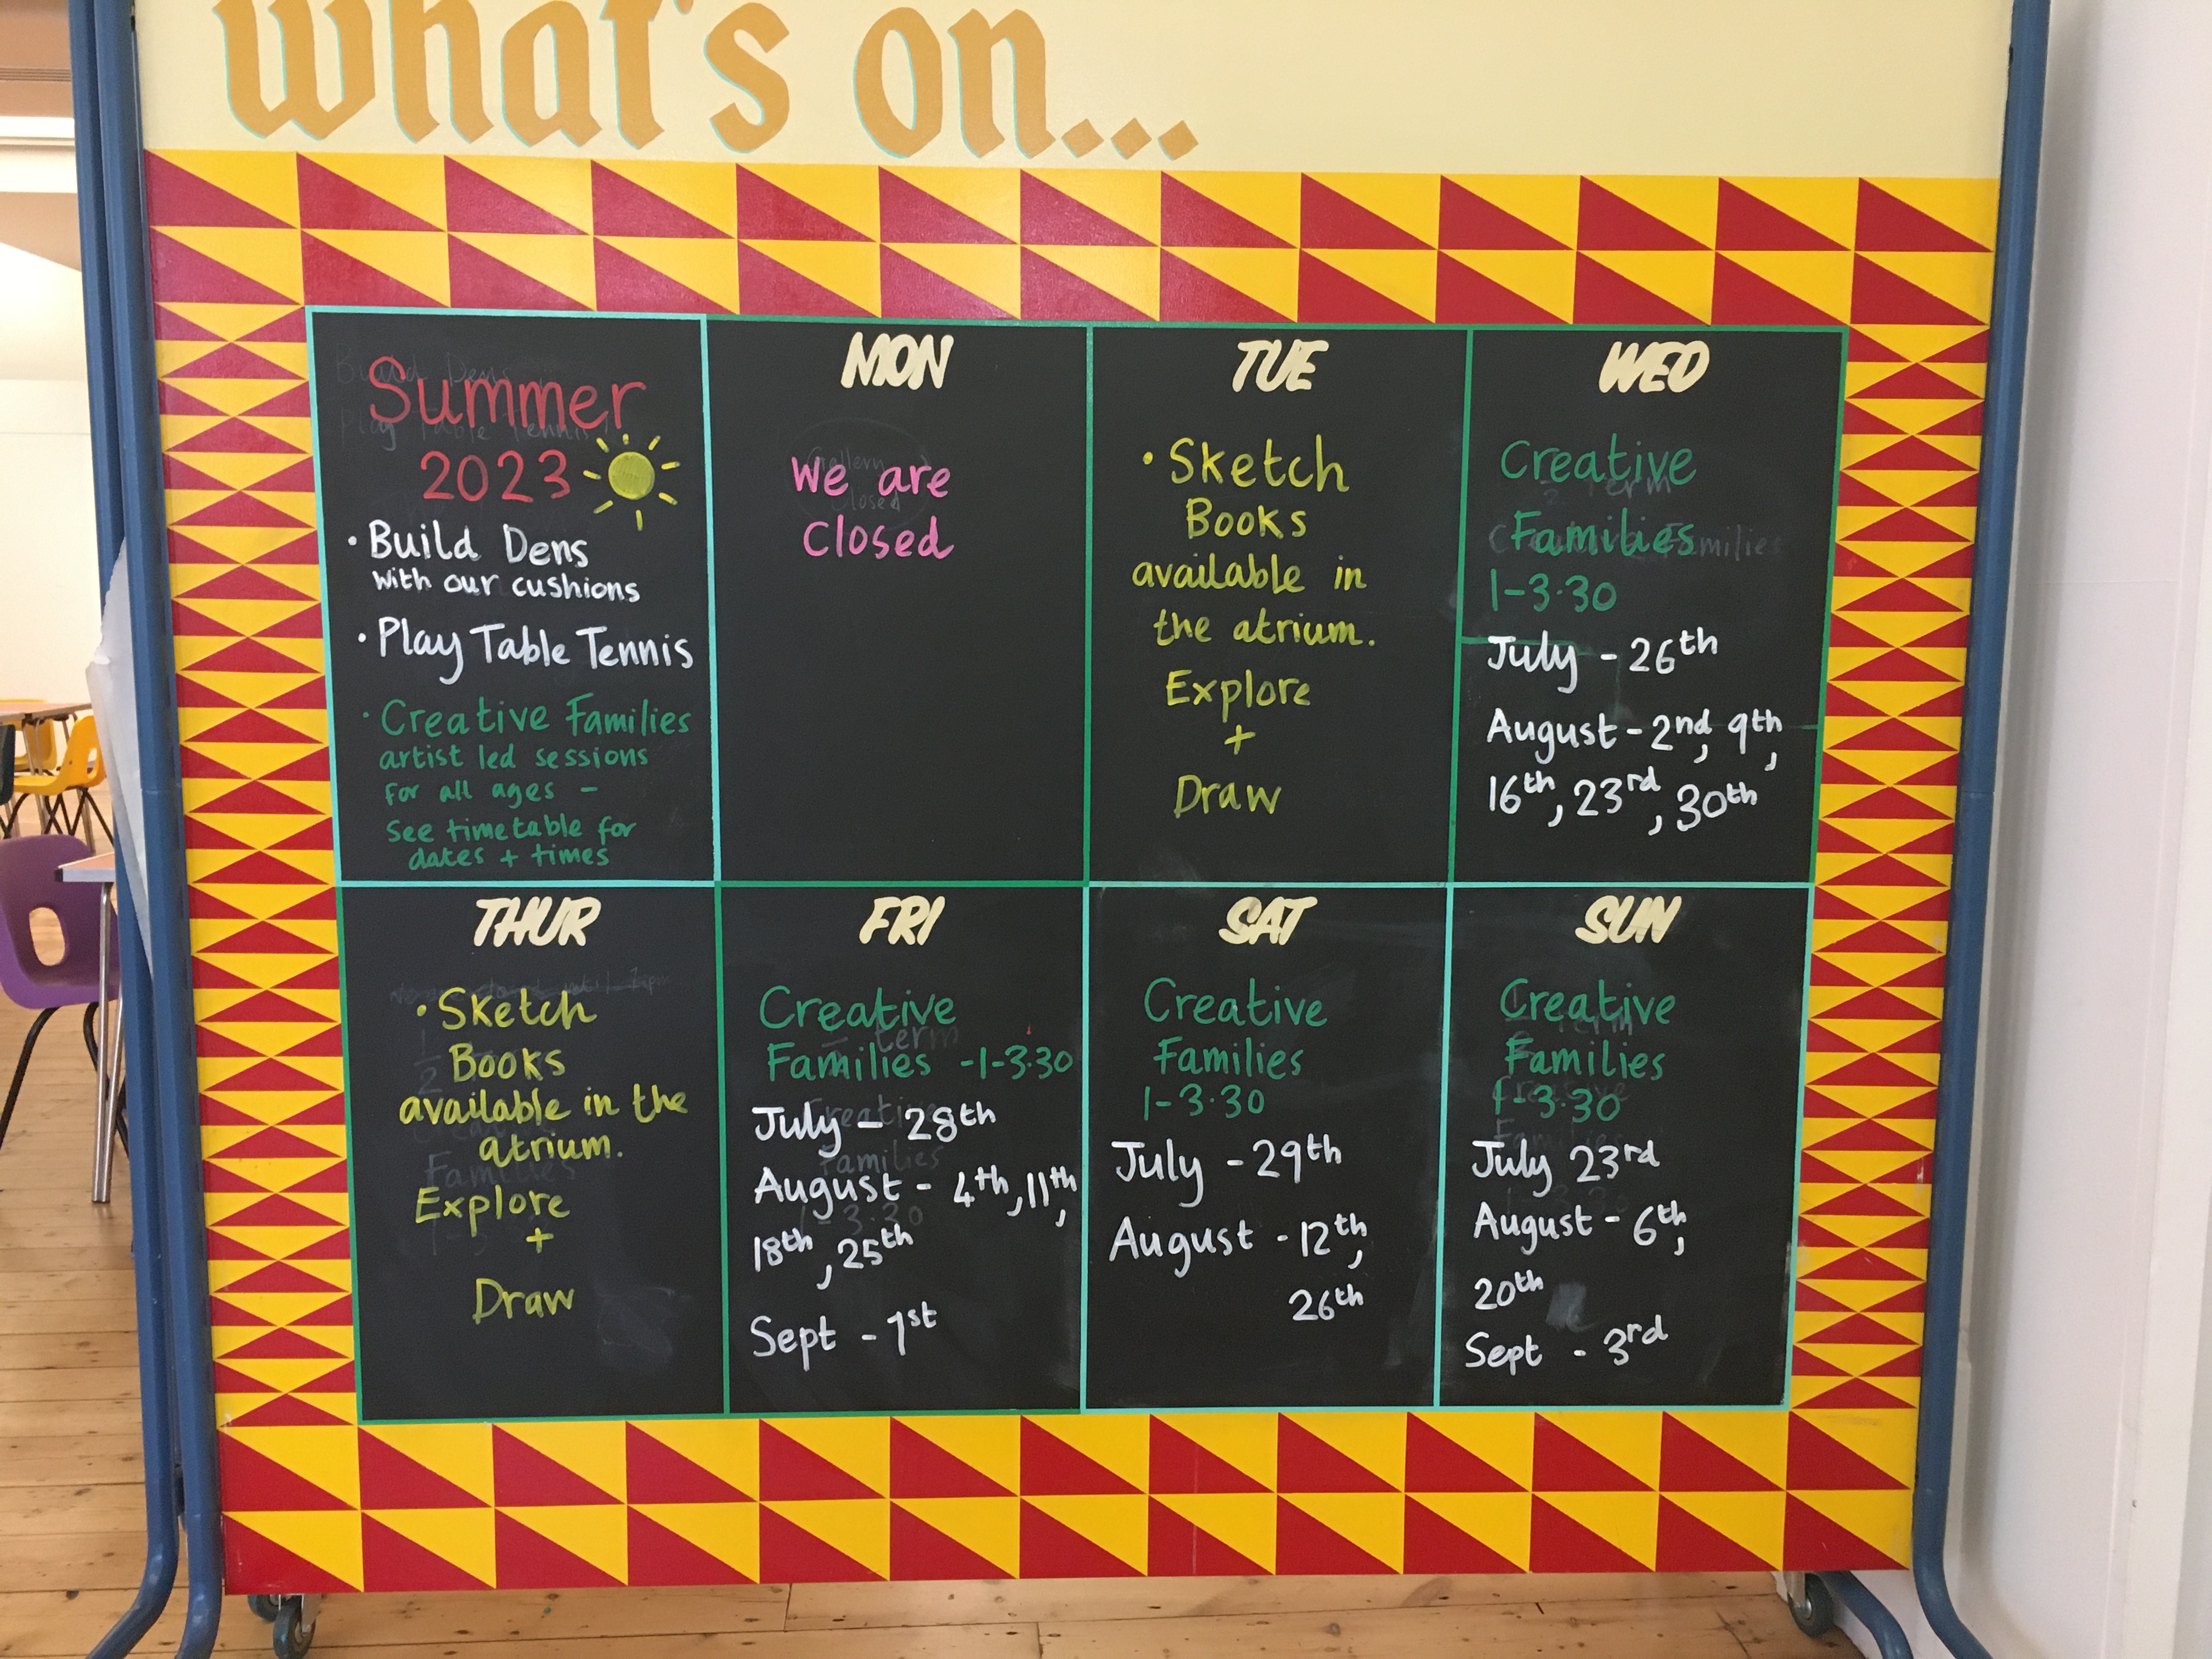 What's on...
Summer
2023
• Build Dens
with our cushions
• Play Table Tennis
• Creative Families
artist led sessions
for all ages –
See timetable for
dates + times
MON
We are
Closed
TUE
• Sketch
Books
available in
the atrium.
Explore
+
Draw
WED
Creative
Families
1-3.30
July - 26th
August - 2nd, 9th,
16th, 23rd, 30th
THUR
• Sketch
Books
available in the
atrium.
Explore
+
Draw
FRI
Creative
Families - 1-3.30
July – 28th
August - 4th, 11th,
18th, 25th
Sept - 1st
SAT
Creative
Families
1-3.30
July - 29th
August - 12th,
26th
SUN
Creative
Families
1-3.30
July 23rd
August - 6th,
20th
Sept - 3rd